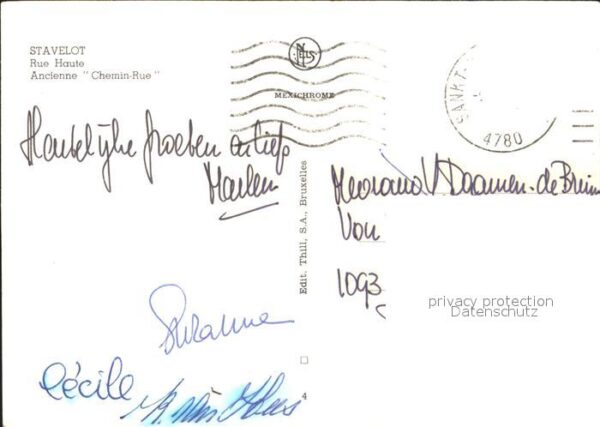 STAVELOT
Rue Haute
Ancienne "Chemin-Rue"
NELS
MEXICHROME
SANKT
4780
Hartelijke groeten en liefs
Marleen
Edit. Thill, S.A., Bruxelles
Daamen-de
1093
privacy protection
Datenschutz
Suzanne
Cécile
4